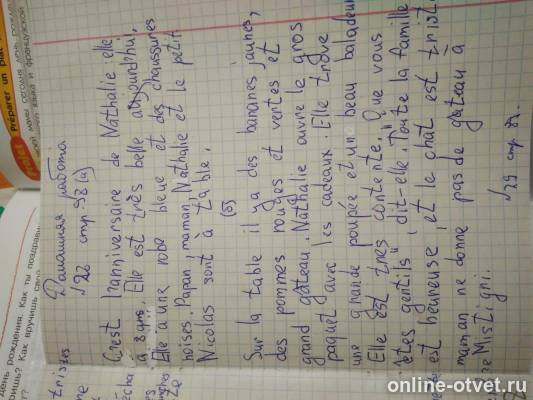 Домашняя работа.
№28 стр 98 (а)
C'est l'anniversaire de Nathalie. elle
a 8 ans. Elle est très belle aujourd'hui,
Elle a une robe bleue et des chaussures
noises. Papan, maman, Nathalie et le petit
Nicolas sont à table.
(б)
Sur la table il ya des bananes jaunes,
des pommes rouges et vertes et
grand gâteau. Nathalie ouvre le gros
paquet avec les cadeaux. Elle trove
une grande poupée et un beau baladeur
Elle est très contente. "Que vous
êtes gentils", dit-elle. Toute la famille
est heureuse, et le chat est triste
maman ne donne pas de gâteau à
Mistigri.
№29 стр
Préparer un plat
Projet
день рождения. Как ты поздрави
ришь? Как вручишь
tristes
online-otvet.ru